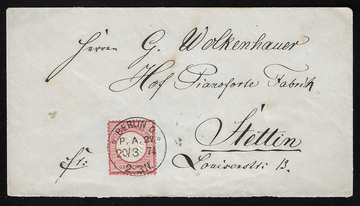 Herrn G. Wolkenhauer
Hof Pianoforte Fabrik
Stettin
Louisenstr. 13.
fr.
BERLIN
P. A. 27
20/3 74
2-3 N.